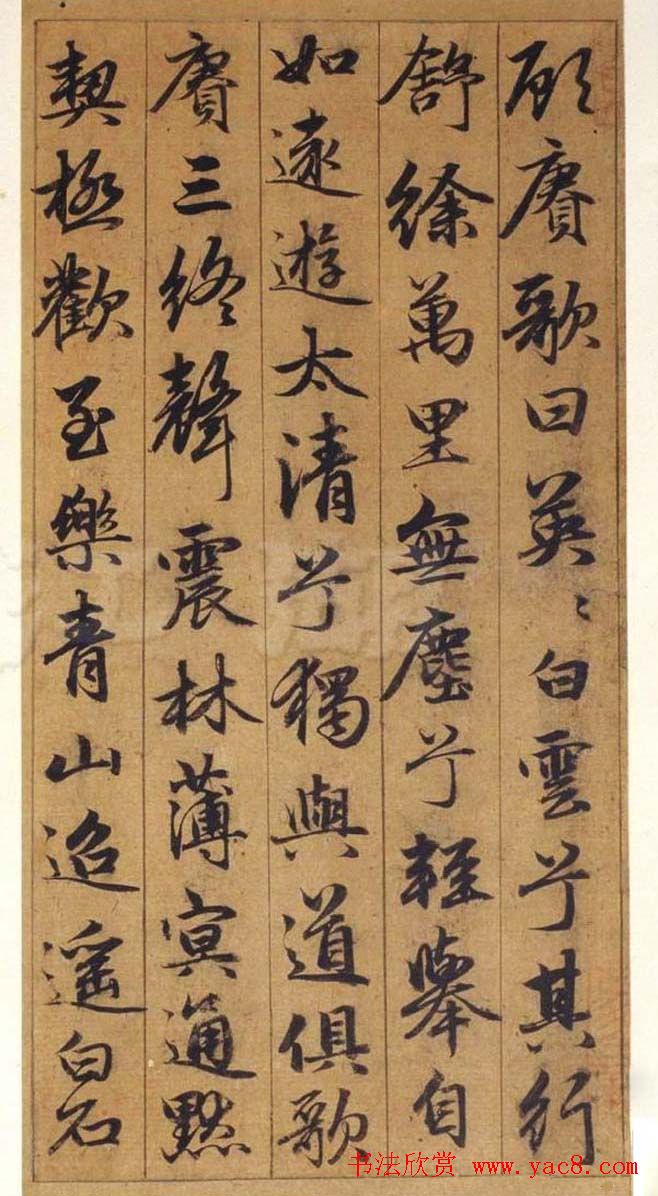 願賡歌曰英〻白雲兮其行
舒徐萬里無塵兮輕擧自
如遠遊太清兮獨與道俱歌
賡三終聲震林薄冥通默
契極歡至樂青山迢遥白石
书法欣赏 www.yac8.com